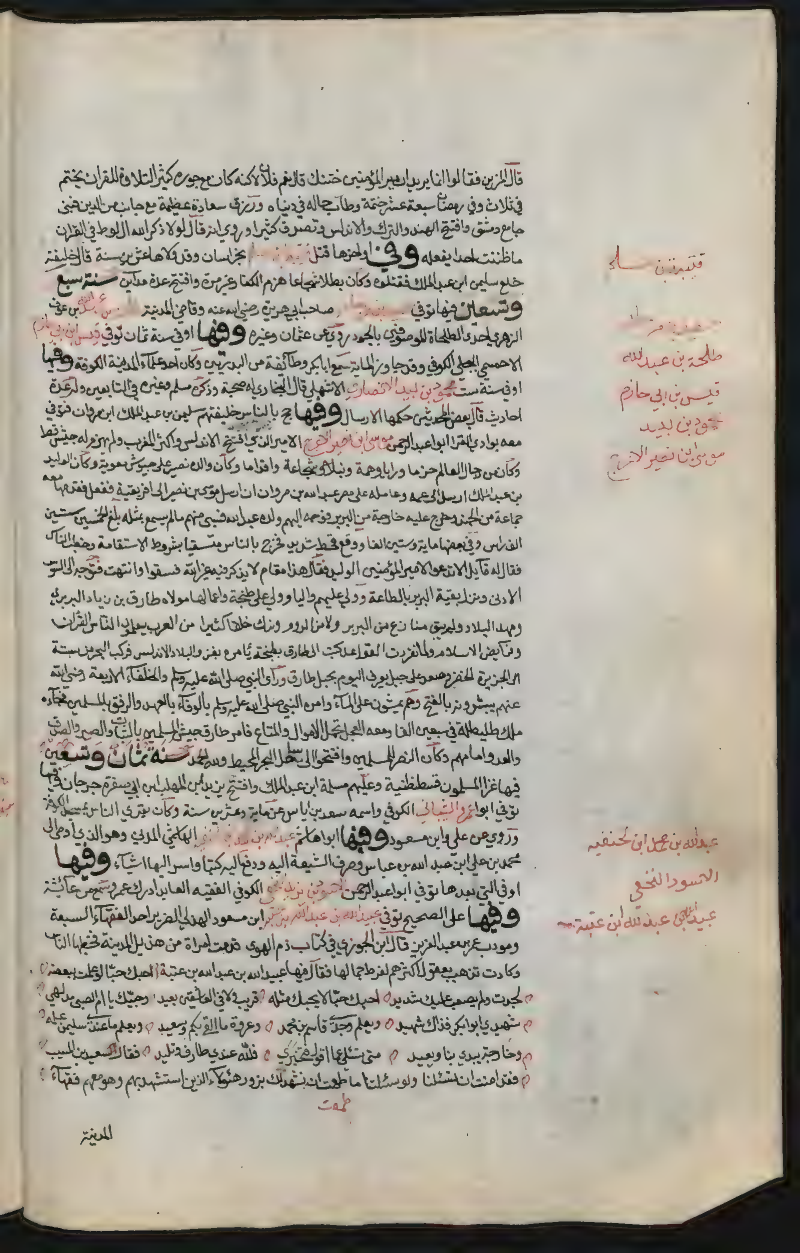 قال المزين فقالوا انما يريدان امير المؤمنين ختنك قال نعم فلا لكنه كان مع جوره كثير التلاوة للقران يختم
في ثلاث وفي رمضان سبعة عشر ختمة وطاب حاله في دنياه ورزق سعادة عظيمة مع جانب من الدين فبنى
جامع دمشق وافتتح الهند والترك والاندلس وتصرف كثيرا وروي انه قال لولا ذكر الله ال لوط في القران
ما ظننت احدا يفعله وفي اخرها قتل بخراسان وقد ولاها عشر سنة قال خليفة
خلع سليمن ابن عبد الملك فقتلوه وكان بطلا شجاعا هزم الكفار غير مرة وافتتح عدة مداين سنة سبع
وتسعين فيها توفي صاحب ابي هريرة رضي الله عنه وقاضي المدينة بن عوف
الزهري احد الطلحاة الموصوفين بالجود روى عن عثمان وغيره وفيها او في سنة ثمان توفي قيس ابن ابي حازم
الاحمسي البجلي الكوفي وقد جاوز الماية سمع ابا بكر وطائفة من البدريين وكان احد علماء المدينة الكوفة وفيها
او في سنة ست محمود بن لبيد الانصاري الاشهلي قال البخاري له صحبة وذكره مسلم وغيره في التابعين وله عدة
احاديث قال بعض المحدثين حكمها الارسال وفيها حج بالناس خليفتهم سليمن بن عبد الملك ابن مروان فتوفي
معه بوادي القرا ابو عبد الرحمن موسى ابن نصير الاعرج الامير الذي افتتح الاندلس واكثر المغرب ولم يهزم له جيش قط
وكان من رجال العالم حزما ورايا وهمة ونبلا وشجاعة واقداما وكان والده نصير على جيوش معوية وكان الوليد
بن عبد الملك ارسل الى عمه وعامله على مصر عبد الله بن مروان ان ارسل موسى بن نصير الى افريقية ففعل فقدمها معه
جماعة من الجند وخرج عليه خارجة من البربر فوجه اليهم ولده عبد الله فسبى منهم مالم يسمع بمثله بلغ الخمس ستين
الف راس وفي بعضها ماية وستين الفا ووقع قحط شديد فخرج بالناس مستسقيا بشروط الاستقامة وخطب الناس
فقال له قايل الا تدعوا لامير المؤمنين الوليد فقال هذا مقام لا يذكر فيه غير الله فسقوا وانتهت فتوحه الى السوس
الادنى ونزل بقية البربر بالطاعة وولى عليهم واليا وولى على طنجة واعمالها مولاه طارق بن زياد البربري
ومهد البلاد ولم يبق منازع من البربر ولا من الروم وترك خلقا كثيرا من العرب يعلمون الناس القران
وفرايض الاسلام ولما تقررت القواعد كتب الى طارق بطنجة يامره بغزو البلاد الاندلس فركب البحر من سبتة
الى الجزيرة الخضرا وصعد على جبل يعرف اليوم بجبل طارق وراى النبي صلى الله عليه وسلم والخلفاء الاربعة رضي الله
عنهم يبشرونه بالفتح وهم يمشون على الماء وامره النبي صلى الله عليه وسلم بالوفاء بالعهد والرفق بالمسلمين
ملك طليطلة في سبعين الفا ومعه العجل تحمل الاموال والمتاع فامر طارق جيش المسلمين بالثبات والصبر
والعدو امامهم وكان النصر للمسلمين وافتتحوا الى ساحل البحر المحيط ولله الحمد سنة ثمان وتسعين
فيها غزا المسلمون قسطنطنية وعليهم مسلمة ابن عبد الملك وافتتح يزيد بن المهلب ابن ابي صفرة جرجان وفيها
توفي ابو عمرو الشيباني الكوفي واسمه سعد بن اياس عن ماية وعشرين سنة وكان يقري الناس بمسجد الكوفة
وروى عن علي وابن مسعود وفيها ابو هاشم عبد الله بن محمد الهاشمي المدني وهو الذي اوصى الى
محمد بن علي ابن عبد الله بن عباس وصرف الشيعة اليه ودفع اليه كتبا واسر اليه اشياء وفيها
او في التي بعدها توفي ابو عبد الرحمن الاسود بن يزيد النخعي الكوفي الفقيه العابد ادرك عمر وسمع من عائشة
وفيها على الصحيح توفي عبيد الله بن عبد الله بن عتبة ابن مسعود الهذلي الضرير احد الفقهاء السبعة
ومودب عمر بن عبد العزيز قال ابن الجوزي في كتاب ذم الهوى قدمت امراة من هذيل المدينة فخطبها الناس
وكادت تذهب بعقول اكثرهم لفرط جمالها فقال فيها عبيد الله بن عبد الله بن عتبة احبك حبا لو علمت ببعضه
لجدت ولم يصعب عليك شديد احبك حبا لا يحبك مثله قريب ولا في العاشقين بعيد وحبك يا ام الصبي مدلهي
شهيدي ابو بكر فذاك شهيد ويعلم وجدي قاسم بن محمد وعروة ما القى بكم وسعيد ويعلم ما عندي سليمن علمه
وخارجة يبدي بنا ويعيد متى تسئلي عما اقول فتخبري فلله عندي طارف وتليد فقال سعيد بن المسيب
فقد امنت ان تسئلنا ولو سئلتنا ما طمعت ان نشهد لك بزور هؤلاء الذين استشهد بهم وهو معهم فقهاء
المدينة
طلحة بن عبد الله
قيس بن ابي حازم
محمود بن لبيد
موسى ابن نصير الاعرج
عبد الله بن محمد ابن الحنفيه
الاسود النخعي
عبيد الله بن عبد الله ابن عتبة